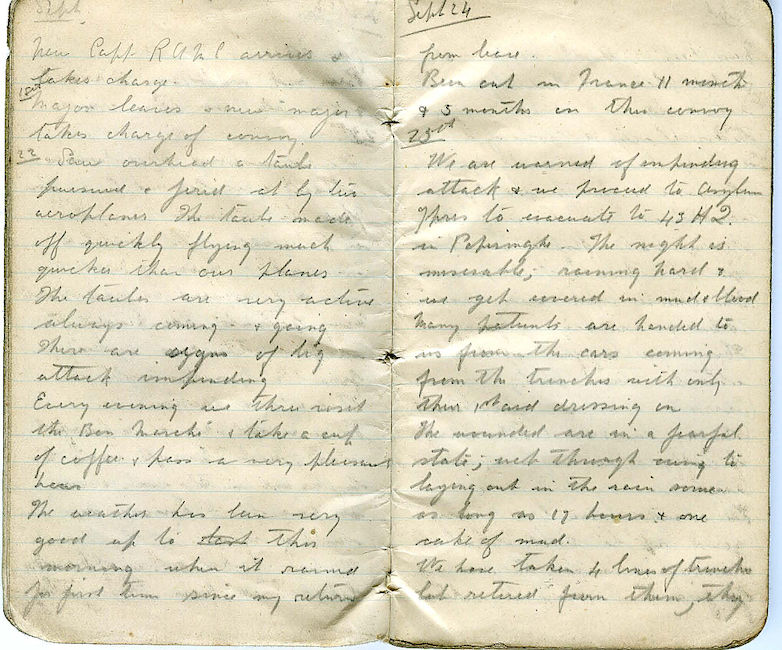 Sept
New Capt R A M C arrives &
takes charge.
18th
Major leaves & new major
takes charge of convoy.
22
Saw overhead a taube
pursued & fired at by two
aeroplanes The taube made
off quickly flying much
quicker than our planes
The taubes are very active
always coming & going
There are signs of big
attack impending
Every evening we three visit
the Bon Marche & take a cup
of coffee & pass a very pleasant
hour
The weather has been very
good up to this
morning when it rained
for first time since my return
Sept 24
from leave.
Been out in France 11 month
& 5 months on this convoy
25th
We are warned of impending
attack & we proceed to Asylum
Ypres to evacuate to 43 H2.
in Popiringhe. The night is
miserable; raining hard &
we get covered in mud & blood
Many patients are handed to
us from the cars coming
from the trenches with only
their 1st aid dressing on
The wounded are in a fearful
state; wet through owing to
laying out in the rain some
as long as 17 hours & one
cake of mud.
We have taken 4 lines of trenches
but retired from them, they